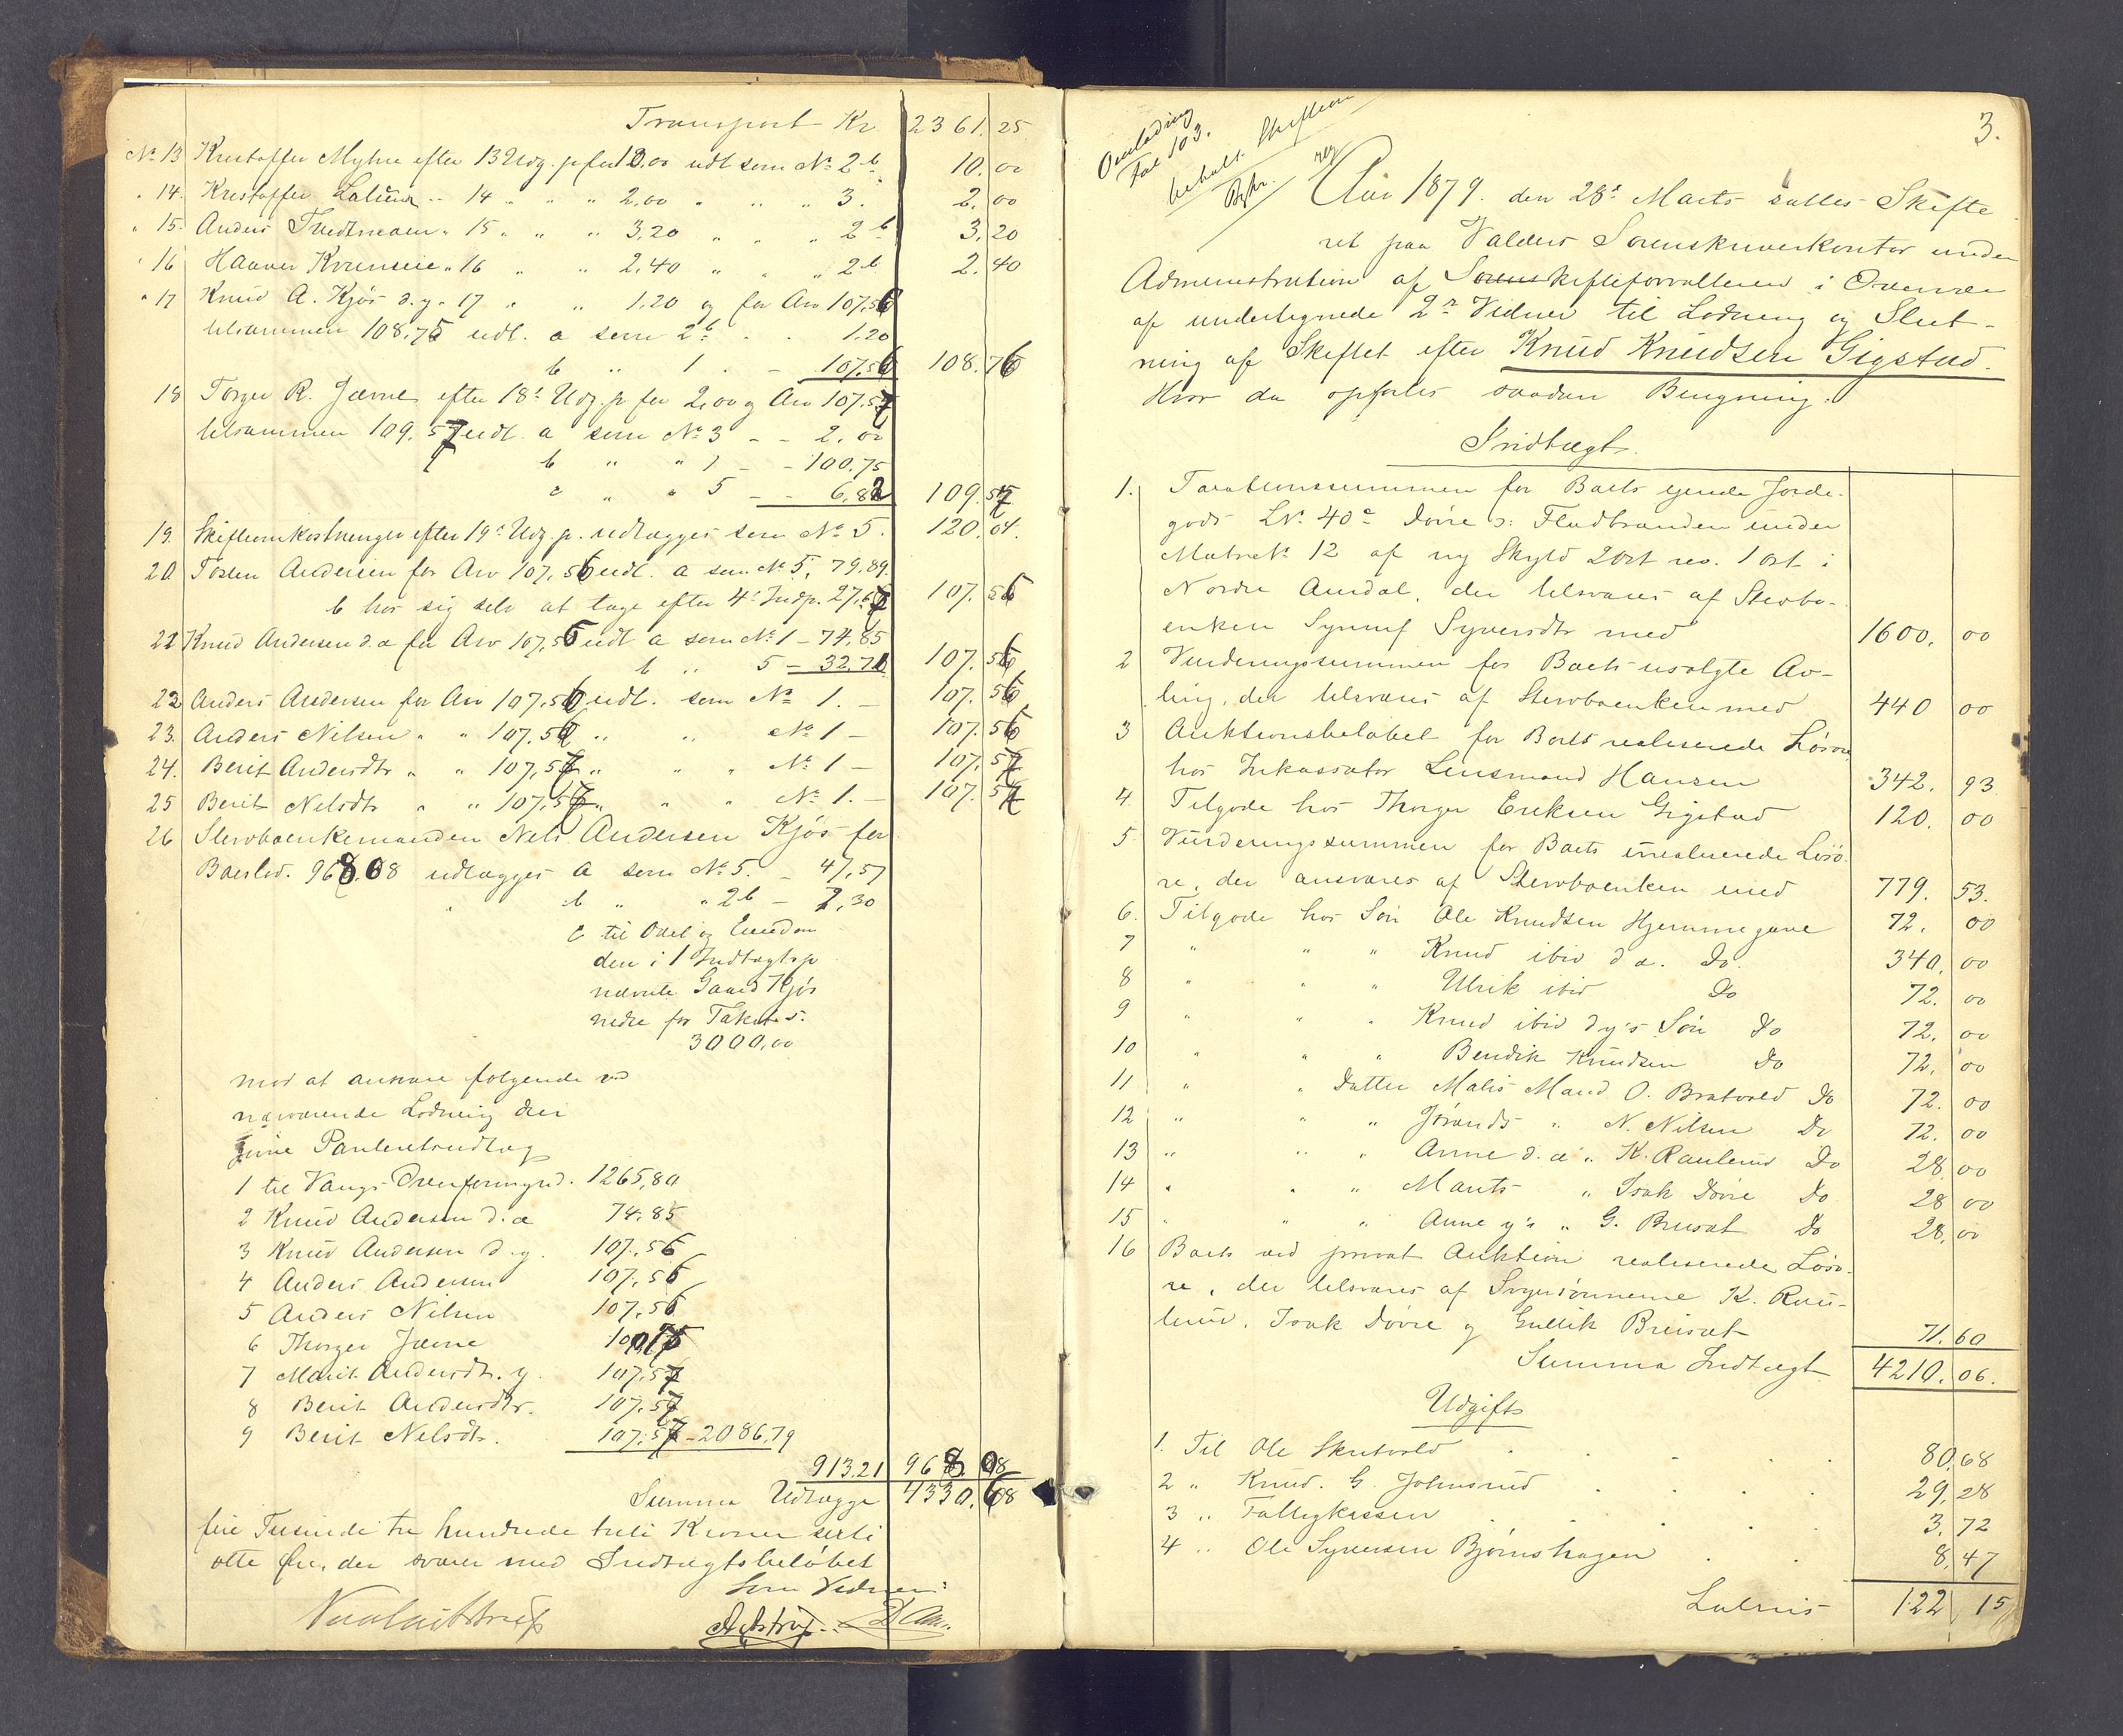 Transport Kr. 2361. 25
No 13 Kristoffer Myhre efter 13 Udg. p for 10.00 udl som No 2b 10. 00
" 14. Kristoffer " 14 " " " 2,00 " " " 3. 2. 00
" 15. Anders " 15 " " " 3,20 " " " 2b 3. 20
" 16 " 16 " " 2,40 " " " 2b 2. 40
" 17 Knud A. Kjøs d.y. " 17 " " 1,20 og for Arv 107,56
tilsammen 108,76 udl. a som 2b - - 1.20
b " 1 - - 107,56 108. 76
18 Torger R. Jævne efter 18de Udg. p for 2,00 og Arv 107,57
tilsammen 109,57 udl. a som No 3 - - 2,00
b " " 1 - - 100,75
c " " 5 - - 6,82 109. 57
19. Skifteomkostninger efter 19de Udg. p. udlægges som No 5. 120. 04.
20 Torsten Andersen for Arv 107,56 udl. a som No 5, 79,89.
b hos sig selv at tage efter 4de Indp. 27,67 107. 56
21 Knud Andersen d.æ for Arv 107,56 udl a som No 1 - 74,85
b " 5 - 32,71 107. 56
22 Anders Andersen for Arv 107,56 udl. som No 1. - 107. 56
23. Anders Nilsen " " 107,56 " " No 1 - 107. 56
24. Berit Andersdtr " " 107,57 " " " No 1 - 107. 57
25 Berit Nelsdtr " " 107,57 " " " No 1. - 107. 57
26 Stervboenkemanden Nels Andersen Kjøs for
Boeslod. 968,08 udlægges a som No 5. - 47,57
" b " " 2b - 7,30
c til Odel og Eiendom
den i 1 Indtægtsp
nævnte Gaard Kjøs
nedre for Takst s:
3000,00
mod at ansvare følgende ved
nærværende Lodning
givne Panteretsudlæg
1 til Vangs Overformynd. 1265,80
2 Knud Andersen d.æ 74,85
3 Knud Andersen d.y. 107,56
4 Anders Andersen 107,56
5 Anders Nilsen 107,56
6 Thorger Jævne 100,75
7 Marit Andersdtr. y. 107,57
8 Berit Andersdtr. 107,57
9 Berit Nelsdtr. 107,57 - 2086.79
913.21 968. 08
Summa Udlægge 4330. 68
fire Tusinde tre hundrede treti Kroner sexti
otte Øre, der svarer med Indtægtsbeløbet
Som Vidner:
3.
Fol 103.
Aar 1879. den 28de Marts sattes Skifte
ret paa Valders Sorenskriverkontor under
Administration af Sorenskifteforvalteren i Overvær
af undertegnede 2de Vidner til Lodning og Slut-
ning af Skiftet efter Knud Knudsen Gigstad.
Hvor da opførtes saadan Beregning:
Indtægt.
1. Taxationssummen for Boets eiende Jorde-
gods LNr. 40a Dövre s: Fladbraaden under
Matr No 12 af ny Skyld 2 Ort rev. 1 ort i
Nordre Aurdal, der tilsvares af Stervbo-
enken Synnøf Syversdtr med 1600. 00
2 Vurderingssummen for Boets usolgte Av-
ling, der tilsvares af Stervboenken med 440 00
3 Auktionsbeløbet for Boets realiserede Løsøre
hos Inkassator Lensmand Hansen 342. 93
4. Tilgode hos Thorger Eriksen Gigstad 120. 00
5 Vurderingssummen for Boets urealiserede Løsø-
re, der ansvares af Stervboenken med 779. 53.
6. Tilgode hos Søn Ole Knudsen Hjemmegave 72. 00
7 " " " Knud ibid d æ. Do. 340. 00
8 " " " Ulrik ibid Do 72. 00
9 " " " Knud ibid d y's Søn Do 72. 00
10 " " " Bendik Knudsen Do 72. 00
11 " " Datter Malis Mand O. Bratvold Do 72. 00
12 " " " Jørands " N. Nilsen Do 72. 00
13 " " " Anne d. æ " K. Raulund Do 28. 00
14 " " " Marits " Isak Dövre Do 28 00
15 " " " Anne y's " G. Do 28. 00
16 Boets ved privat Auktion realiserede Løsø-
re, der tilsvares af Svigersønnerne K. Rau-
lund, Isak Dövre og Gullik 71. 60
Summa Indtægt 4210. 06.
Udgift
1. Til Ole Skutvold . . . 80. 68
2 " Knud. G. Johnsrud . . . 29. 28
3 " Fattigkassen . . . 3. 72
4 " Ole Syversen Bjørnshagen . . 8. 47
Lateris 122 15